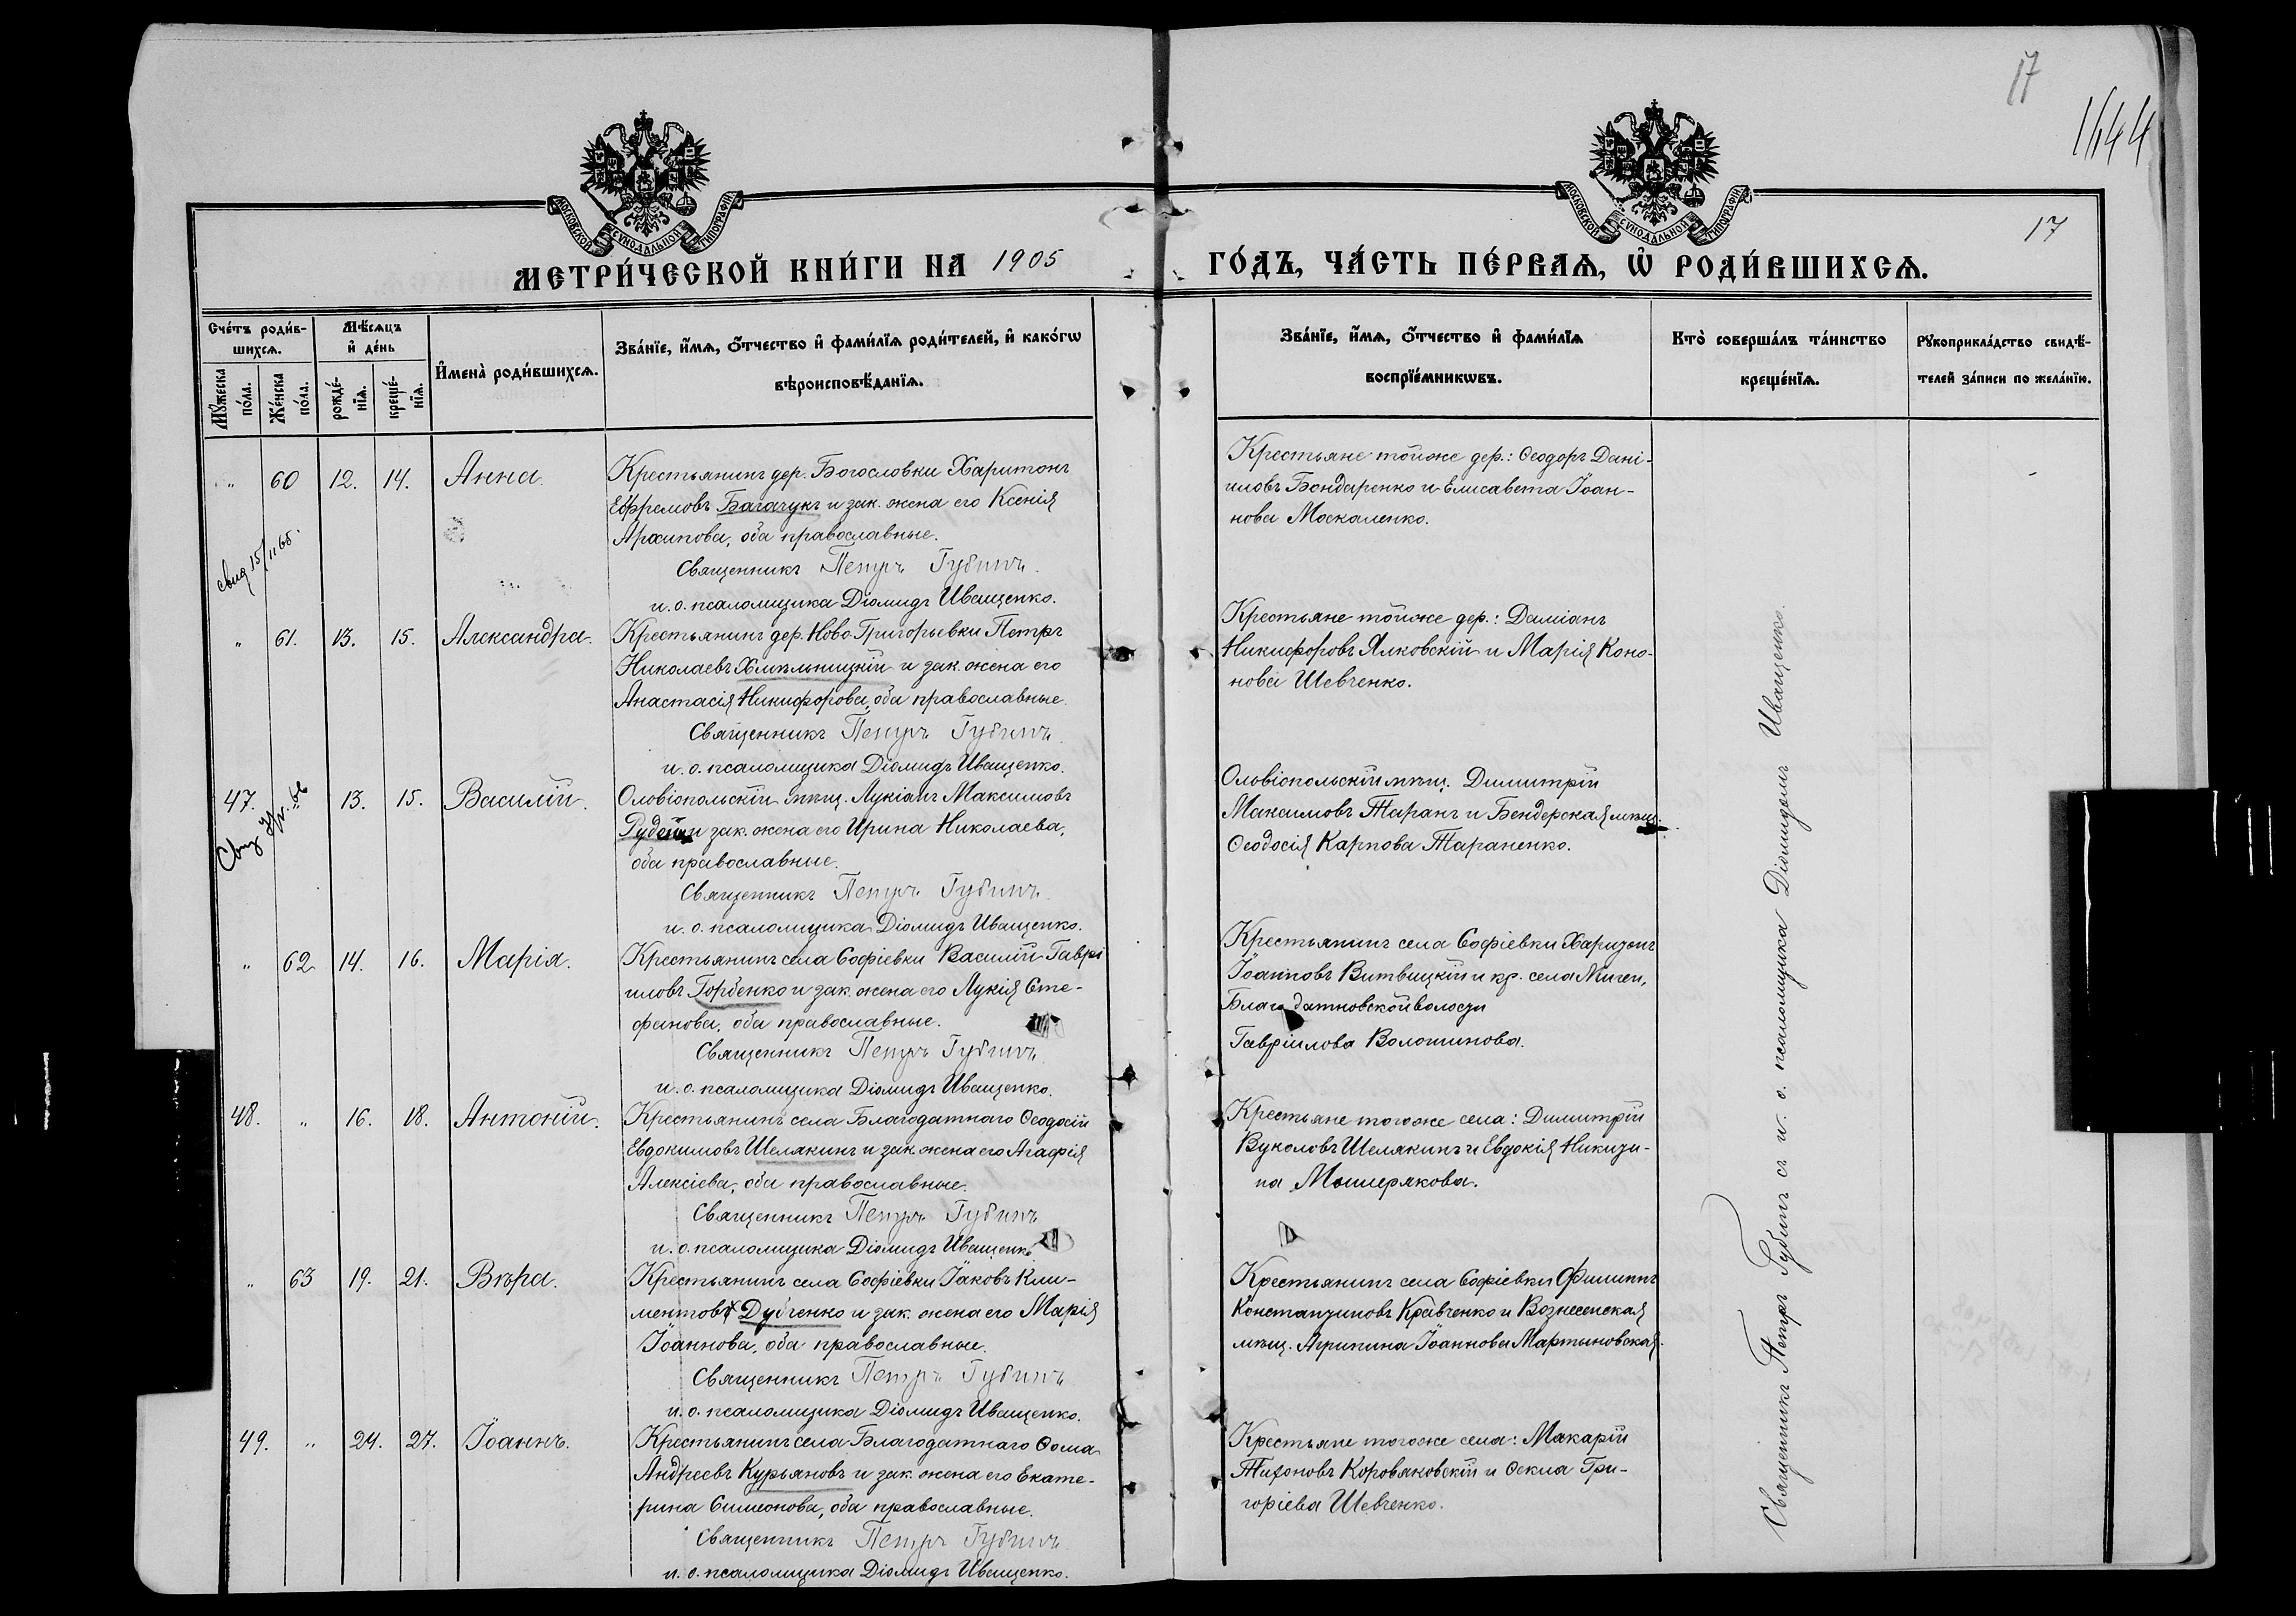 17
1644
17
МОСКОВСКОЙ СѴНОДАЛЬНОЙ ТИПОГРАФІИ
МОСКОВСКОЙ СѴНОДАЛЬНОЙ ТИПОГРАФІИ
МЕТРИ́ЧЕСКОЙ КНИ́ГИ НА 1905 ГО́ДЪ, ЧА́СТЬ ПЕ́РВАѦ, Ѡ҆ РОДИ́ВШИХСѦ.
Сче́тъ роди́в-
шихсѧ.
Мꙋ́жеска по́ла.
Же́нска по́ла.
Мѣ́сѧцъ
и҆ де́нь
рожде́-
нїѧ.
креще́-
нїѧ.
И҆мена̀ роди́вшихсѧ.
Зва́нїе, и҆́мѧ, ѻ҆́тчество и҆ фами́лїѧ роди́телей, и҆ како́гѡ
вѣроисповѣ́данїѧ.
Зва́нїе, и҆́мѧ, ѻ҆́тчество и҆ фами́лїѧ
воспрїе́мникѡвъ.
Кто̀ соверша́лъ та́инство
креще́нїѧ.
Рꙋкоприкла́дство свидѣ́-
телей за́писи по жела́нїю.
" 60 12. 14. Анна.
Крестьянинъ дер. Богословки Харитонъ
Ефремовъ Багачукъ и зак. жена его Ксенія
Архипова, оба православные.
Священникъ Петръ Губинъ.
и. о. псаломщика Діомидъ Иващенко.
Крестьяне тойже дер.: Ѳеодоръ Дані-
иловъ Бондаренко и Елисавета Іоан-
нова Москаленко.
" 61. 13. 15. Александра.
Крестьянинъ дер. Ново-Григорьевки Петръ
Николаевъ Хмѣльницкій и зак. жена его
Анастасія Никифорова, оба православные.
Священникъ Петръ Губинъ.
и. о. псаломщика Діомидъ Иващенко.
Крестьяне тойже дер.: Даміанъ
Никифоровъ Ялковскій и Марія Коно-
нова Шевченко.
47. " 13. 15. Василій.
Ольвіопольскій мѣщ. Лукіанъ Максимовъ
и зак. жена его Ирина Николаева,
оба православные.
Священникъ Петръ Губинъ.
и. о. псаломщика Діомидъ Иващенко.
Ольвіопольскій мѣщ. Димитрій
Максимовъ Таранъ и Бендерская мѣщ.
Ѳеодосія Карпова Тараненко.
" 62 14. 16. Марія.
Крестьянинъ села Софіевки Василій Гаврі
иловъ Горбенко и зак. жена его Лукія Сте-
фанова, оба православные.
Священникъ Петръ Губинъ
и. о. псаломщика Діомидъ Иващенко.
Крестьянинъ села Софіевки Харитонъ
Іоанновъ Витвицкій и кр. села Мигеи,
Благодатновской волости
Гавріилова Волошинова.
48. " 16. 18. Антоній.
Крестьянинъ села Благодатнаго Ѳеодосій
Евдокимовъ Шелякинъ и зак. жена его Агафія
Алексіева, оба православные.
Священникъ Петръ Губинъ
и. о. псаломщика Діомидъ Иващенко
Крестьяне тогоже села: Димитрій
Вуколовъ Шелякинъ и Евдокія Никити-
на Мышерякова.
" 63 19. 21. Вѣра.
Крестьянинъ села Софіевки Іаковъ Кли-
ментовъ Дубченко и зак. жена его Марія
Іоаннова, оба православные.
Священникъ Петръ Губинъ
и. о. псаломщика Діомидъ Иващенко.
Крестьянинъ села Софіевки Филиппъ
Константиновъ Кравченко и Вознесенская
мѣщ. Агрипина Іоаннова Мартыновская.
49. " 24. 27. Іоаннъ.
Крестьянинъ села Благодатнаго Ѳома
Андреевъ Курьяновъ и зак. жена его Екате-
рина Симеонова, оба православные.
Священникъ Петръ Губинъ
и. о. псаломщика Діомидъ Иващенко.
Крестьяне тогоже села: Макарій
Тихоновъ Коровяковскій и Ѳекла Гри-
горіева Шевченко.
Священникъ Петръ Губинъ съ и. о. псаломщика Діомидомъ Иващенко.